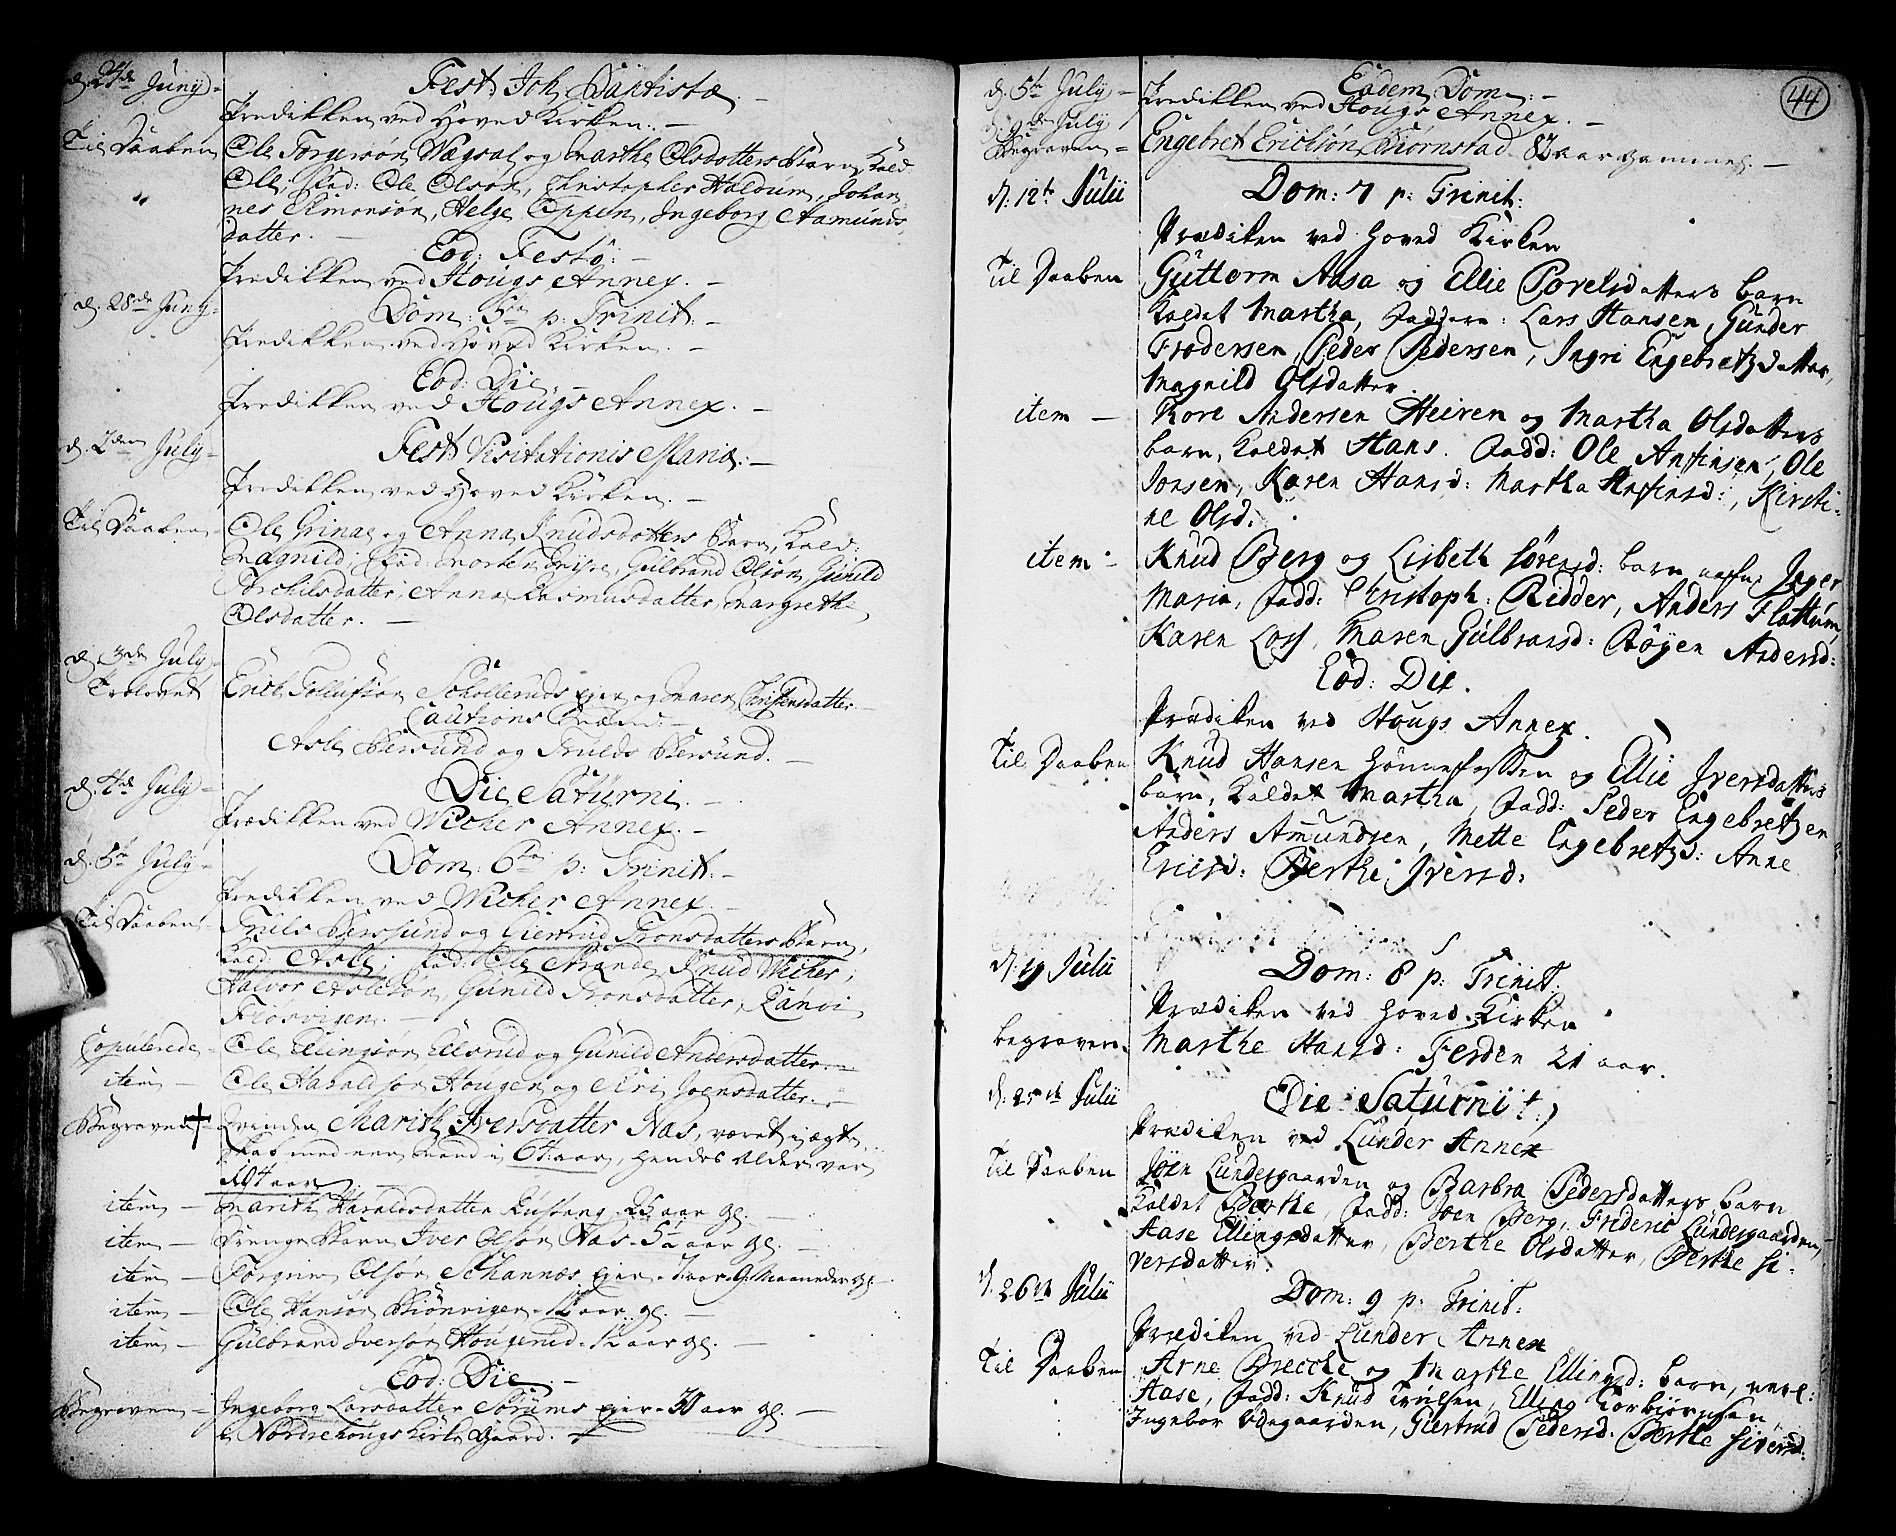 d. 24de Junÿ - Fest: Joh. Baptistæ. -
Predikken ved Hoved Kirken. -
Til Daaben Ole Torgersøn Wagsal og Marthe Olsdotters Barn, Kald:
Ole; Fad: Ole Olsøn, Christopher Haldum, Johan
nes Simonsøn, Helge Oppen, Ingeborg Aamunds
datter. -
Eod: Festo: -
Predikken ved Hougs Annex. -
d. 28de Junÿ - Dom: 5ta p: Trinit: -
Predikken ved Hoved Kirken. -
Eod: Die. -
Predikken ved Hougs Annex. -
d. 2den July - Fest: Visitationis Mariæ: -
Predikken ved Hoved Kirken. -
Til Daaben - Ole Grinag og Anna Knudsdotters Barn, Kald:
Magnild; Fad: Morten, Gulbrand Olsøn, Gunild
Torchilsdatter, Anna Rasmusdatter, Margrethe
Olsdatter. -
d. 3de July -
Trolovet Erich Tollufsøn Schollerudsejer og Maren Christensdatter. -
Cautions Mænd -
Asle Bersund og Truls Bersund. -
d. 4de July - Die Saturni. -
Prædikken ved Wicher Annex. -
d. 5te July - Dom: 6ta p: Trinit: -
Predikken ved Wicher Annex. -
Til Daaben - Truls Berssund og Giertrud Tronsdatters Barn,
Kald: Asle; Fad: Ole Strande, Knud Wicher,
Halvor Aslesøn, Gunild Tronsdatter, Ranvi
Frosvigen. -
Copulerede - Ole Ellingsøn Elsrud og Gunild Andersdatter. -
item - Ole Haraldsøn Hougen og Siri Joensdatter. -
Begraven + Qvinden Marith Iversdatter Næs, været i ægte
skab med een Mand i 64 aar, hendes Alder var
104 aar. -
item - Marith Haraldsdatter 25 aar gl. -
item - Drenge Barn Iver Olsøn Næs - 5 1/2 aar gl. -
item - Torgrim Olsøn Schannesejer - 7 aar 9 Maaneder gl
item - Ole Hansøn - 12 aar gl. -
item - Gulbrand Iversøn Hougerud - 12 aar gl. -
Eod: Die -
Begraven - Ingeborg Larsdatter Sørumsejer - 30 aar gl. -
i Nordrehougs Kirke Gaard.
44
d. 5te July - Eadem Dom: -
Predikken ved Hougs Annex. -
d. 9de July
Begraven - Engebret Erichsøn Biørnstad 82 aar gammel. -
d: 12te Julii Dom: 7 p: Trinit:
Prædiken ved Hoved Kirken
Til Daaben Guttorm Aasa og Ellie Povelsdatters barn
Kaldet Martha, Faddere: Lars Hansen, Gunder
Frodersen, Peder Pedersen, Ingri Engebretzdatter,
Magnild Olsdatter.
item - Tore Andersen Heiren og Martha Olsdatters
barn, Kaldet Hans. Fadd: Ole Anfinsen, Ole
Jonsen, Karen Hansd: Martha Anfinsd:, Kirsti-
ne Olsd:
item - Knud Berg og Lisbeth Sørensd: barn Inger
Maria, Fadd: Christoph: Ridder, Anders Flattum,
Karen Loss, Maren Gulbransd: Bøyen Andersd:
Eod: Die.
Prædiken ved Hougs Annex.
Til Daaben Knud Hansen Hønnefossen og Ellie Iversdatters
barn, Kaldet Martha, Fadd: Peder Engebretzen
Anders Amundsen, Mette Engebretzd: Anne
Ericsd: Berthe Iversd:
d: 19 Julii Dom: 8 p: Trinit:
Prædiken ved Hoved Kirken
begraven - Marthe Hansd: Ferden 21 aar.
d: 25de Julii Die Saturni
Prædiken ved Lunder Annex
Til Daaben Joen Lundergaarden og Barbra Pedersdatters barn
Kaldet Berthe, Fadd: Joen Berg, Frideric Lundergaarden,
Aase Ellingsdatter, Berthe Olsdatter, Berthe Si-
versdatter.
d. 26de Julii Dom: 9 p: Trinit:
Prædiken ved Lunder Annex
Til Daaben Arne Brecche og Marthe Ellingsd: barn,
Aase, Fadd: Knud Trulsen, Elling Torbiørnsen,
Ingebor Ødegaarden, Giertrud Pedersd: Berthe Siversd: